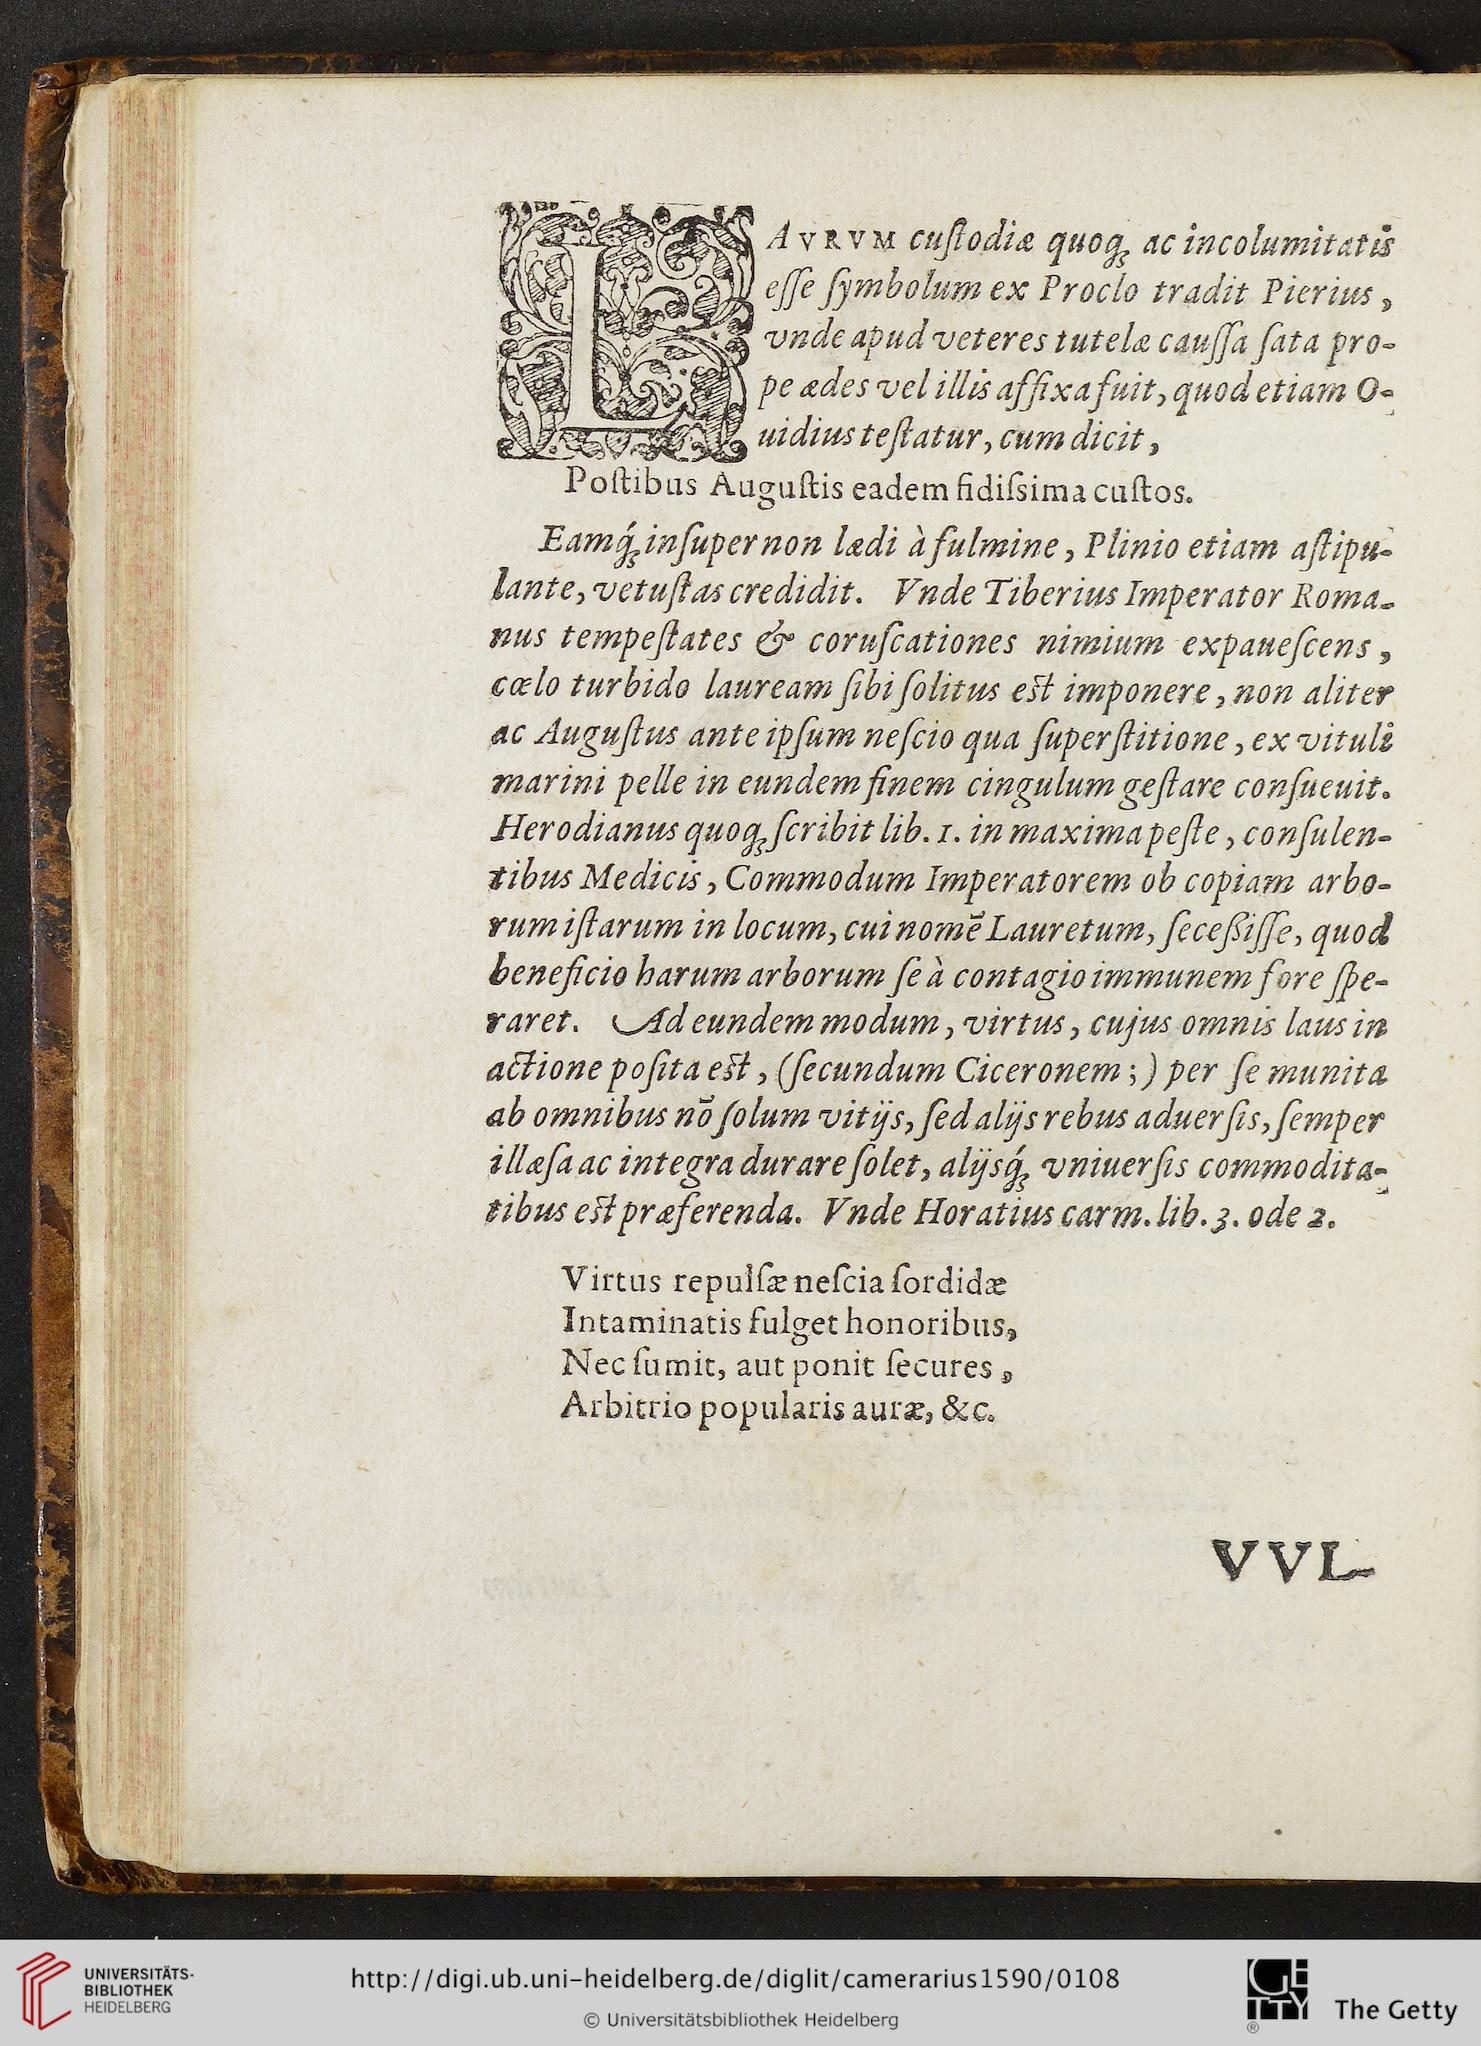 LAVRVM cuſtodiæ quoq; ac incolumitatis
eſſe ſymbolum ex Proclo tradit Pierius,
vnde apud veteres tutelæ cauſſa ſata pro-
pe ædes vel illis affixa fuit, quod etiam O-
uidius teſtatur, cum dicit,
Poſtibus Auguſtis eadem fidiſsima cuſtos.
Eamq́; inſuper non lædi à fulmine, Plinio etiam aſtipu-
lante, vetuſtas credidit. Vnde Tiberius Imperator Roma-
nus tempeſtates & coruſcationes nimium expaueſcens,
cœlo turbido lauream ſibi ſolitus eſt imponere, non aliter
ac Auguſtus ante ipſum neſcio qua ſuperſtitione, ex vituli
marini pelle in eundem finem cingulum geſtare conſueuit.
Herodianus quoq; ſcribit lib. 1. in maxima peſte, conſulen-
tibus Medicis, Commodum Imperatorem ob copiam arbo-
rum iſtarum in locum, cui nomē Lauretum, ſeceßiſſe, quod
beneficio harum arborum ſe à contagio immunem fore ſpe-
raret. Ad eundem modum, virtus, cujus omnis laus in
actione poſita eſt, (ſecundum Ciceronem;) per ſe munita
ab omnibus nō ſolum vitijs, ſed alijs rebus aduerſis, ſemper
illæſa ac integra durare ſolet, alijsq́; vniuerſis commodita-
tibus eſt præferenda. Vnde Horatius carm. lib. 3. ode 2.
Virtus repulſæ neſcia ſordidæ
Intaminatis fulget honoribus,
Nec ſumit, aut ponit ſecures,
Arbitrio popularis auræ, &c.
VVL-
UNIVERSITÄTS-
BIBLIOTHEK
HEIDELBERG
http://digi.ub.uni-heidelberg.de/diglit/camerarius1590/0108
© Universitätsbibliothek Heidelberg
GETTY
®
The Getty